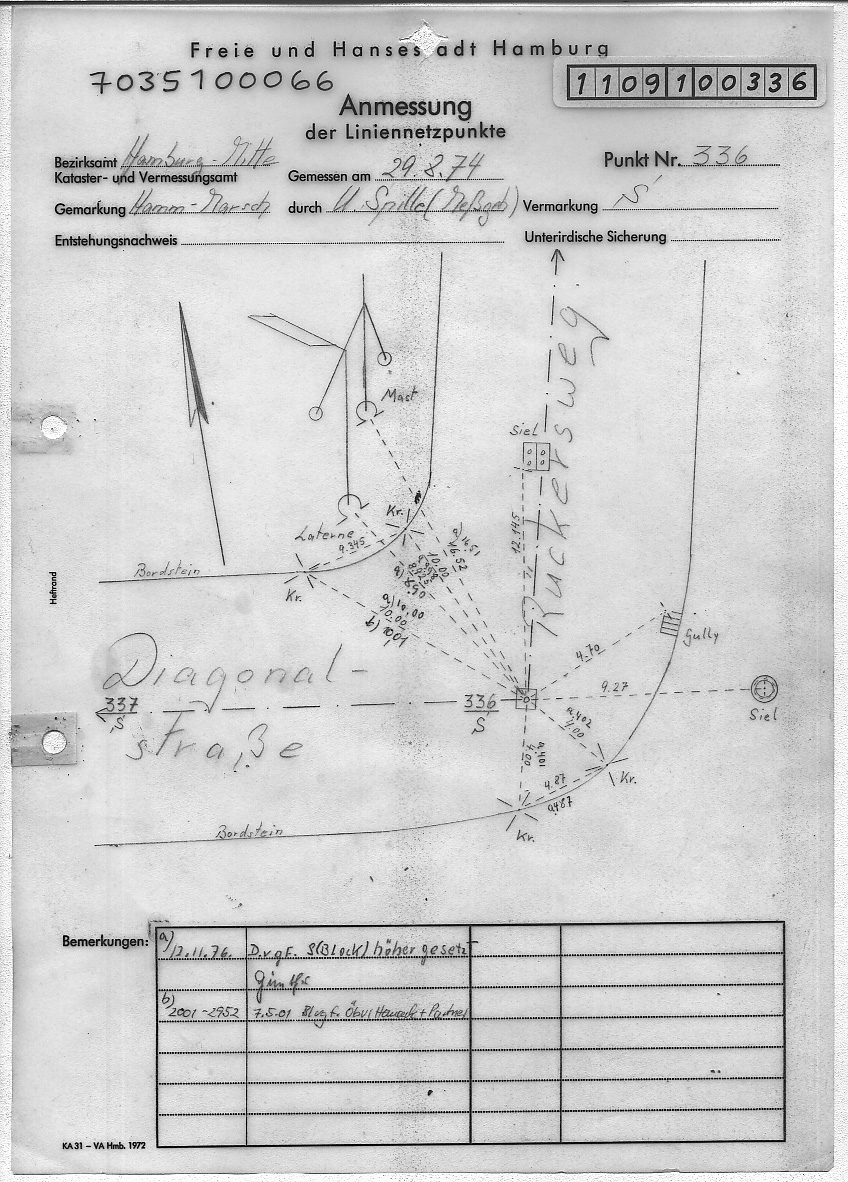 Freie und Hansestadt Hamburg
7035100066
1109100336
Anmessung
der Liniennetzpunkte
Bezirksamt Hamburg-Mitte
Kataster- und Vermessungsamt
Gemessen am 29.8.74
Punkt Nr. 336
Gemarkung Hamm-Marsch
durch U. Spille (Meßgeh)
Vermarkung S
Entstehungsnachweis
Unterirdische Sicherung
Mast
Siel
Rückersweg
Kr.
Laterne
9.345
a) 16.51
16.52
10.00
12.145
Bordstein
Kr.
a) 8.90
a) 10.00
10.00
Heftrand
4.70
Gully
Diagonal-
straße
337
S
336
S
9.27
Siel
a.402
4.00
a.401
4.00
4.87
a487
Kr.
Kr.
Bordstein
Bemerkungen:
a) 12.11.76. D.v.gF. S(Block) höher gesetzt
b) 2001-2952 7.5.01 ÖbVI + Partner
KA 31 – VA Hmb. 1972